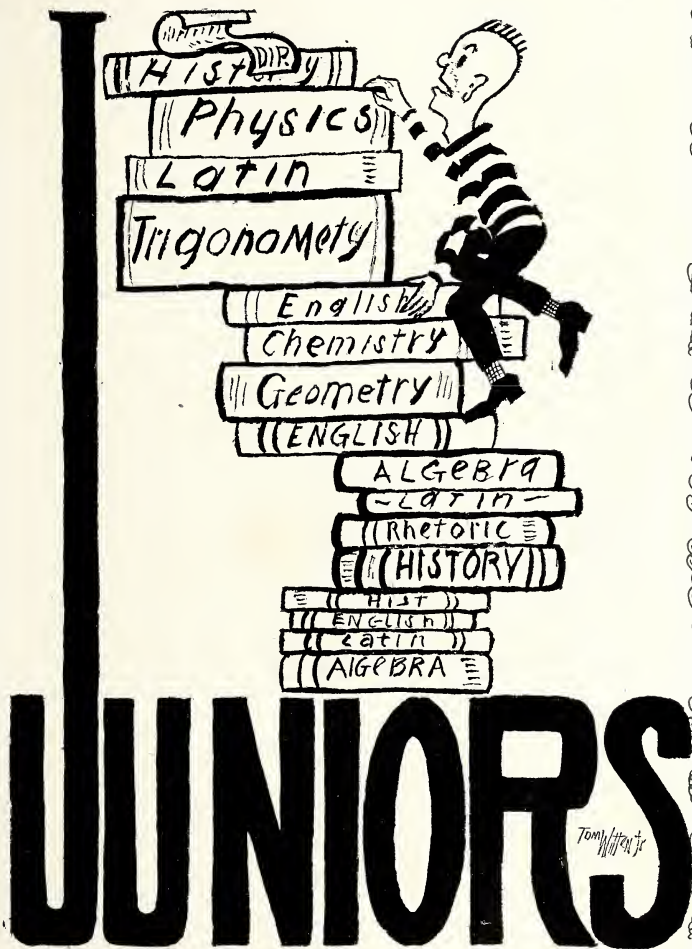 DIP.
History
Physics
Latin
Trigonomety
English
Chemistry
Geometry
ENGLISH
ALGebra
-LaTin-
Rhetoric
HISTORY
HIST
ENGLISh
Latin
AlGeBRA
JUNIORS
Tom Witten Jr